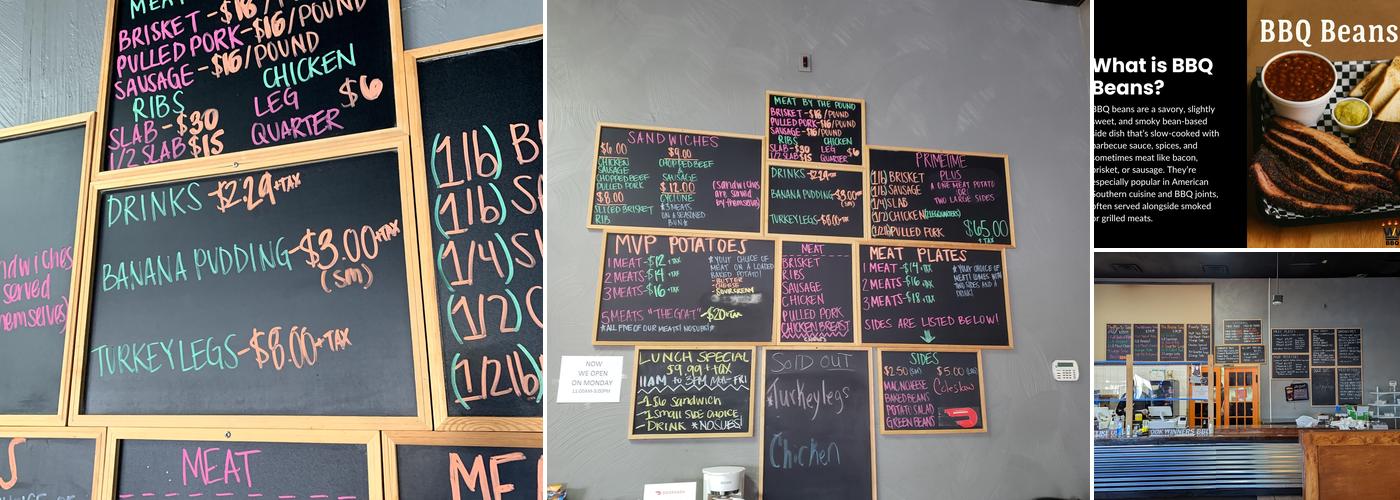 BRISKET-$18/POUND
PULLED PORK-$16/POUND
SAUSAGE-$16/POUND
RIBS
SLAB-$30
1/2 SLAB $15
CHICKEN
LEG
QUARTER
$6
DRINKS-$2.29+TAX
BANANA PUDDING-$3.00+TAX
(sm)
TURKEY LEGS-$8.00+TAX
served
(1lb)
(1lb)
(1/4)
(1/2)
(1/2lb)
MEAT
MEAT BY THE POUND
BRISKET-$18/POUND
PULLED PORK-$16/POUND
SAUSAGE-$16/POUND
RIBS
SLAB-$30
1/2 SLAB $15
CHICKEN
LEG
QUARTER
$6
SANDWICHES
$6.00
CHICKEN
SAUSAGE
CHOPPED BEEF
PULLED PORK
$8.00
SLICED BRISKET
RIB
$9.00
CHOPPED BEEF
&
SAUSAGE
$12.00
CYCLONE
*3 MEATS
ON A SEASONED
BUN*
(Sandwiches
are served
by themselves)
DRINKS-$2.29+TAX
BANANA PUDDING-$3.00+TAX
(sm)
TURKEY LEGS-$8.00+TAX
PRIMETIME
PLUS
A ONE MEAT POTATO
OR
TWO LARGE SIDES
(1lb) BRISKET
(1lb) SAUSAGE
(1/4) SLAB
(1/2) CHICKEN (LEG QUARTERS)
(1/2lb) PULLED PORK
$65.00
+TAX
MVP POTATOES
1 MEAT-$12+TAX
2 MEATS-$14+TAX
3 MEATS-$16+TAX
*YOUR CHOICE OF
MEAT ON A LOADED
BAKED POTATO!
-BUTTER
-CHEESE
-SOUR CREAM
5 MEATS "THE GOAT"-$20+TAX
*ALL FIVE OF OUR MEATS! NO SUBS!*
MEAT
BRISKET
RIBS
SAUSAGE
CHICKEN
PULLED PORK
CHICKEN BREAST
MEAT PLATES
1 MEAT-$14+TAX
2 MEATS-$16+TAX
3 MEATS-$18+TAX
*YOUR CHOICE OF
MEAT! COMES WITH
TWO SIDES AND A
DRINK!
SIDES ARE LISTED BELOW!
NOW
WE OPEN
ON MONDAY
11:00AM-3:00PM
LUNCH SPECIAL
$9.99+TAX
11AM to 3PM MON-FRI
-1 Sandwich
-1 SMALL SIDE CHOICE
-DRINK *NO SUBS!
SOLD OUT
*Turkey legs
Chicken
SIDES
$2.50 (SM)
$5.00 (LRG)
MAC N CHEESE
BAKED BEANS
POTATO SALAD
GREEN BEANS
Coleslaw
DOORDASH
BBQ Beans
What is BBQ
Beans?
BBQ beans are a savory, slightly
sweet, and smoky bean-based
side dish that's slow-cooked with
barbecue sauce, spices, and
sometimes meat like bacon,
brisket, or sausage. They're
especially popular in American
Southern cuisine and BBQ joints,
often served alongside smoked
or grilled meats.
BBQ
WINNERS BBQ